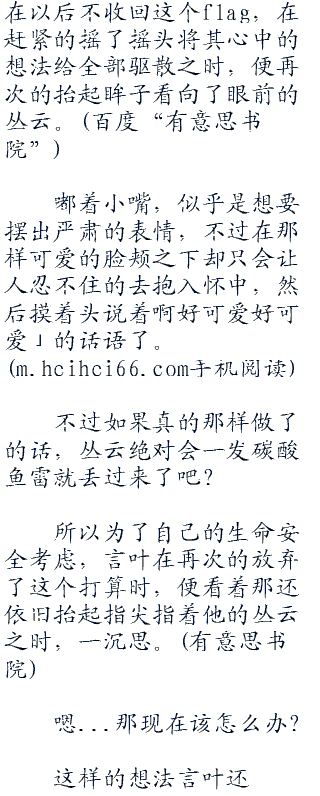 在以后不收回这个flag，在
赶紧的摇了摇头将其心中的
想法给全部驱散之时，便再
次的抬起眸子看向了眼前的
丛云。(百度“有意思书
院”)
嘟着小嘴，似乎是想要
摆出严肃的表情，不过在那
样可爱的脸颊之下却只会让
人忍不住的去抱入怀中，然
后摸着头说着啊好可爱好可
爱」的话语了。
(m.hcihci66.com手机阅读)
不过如果真的那样做了
的话，丛云绝对会一发碳酸
鱼雷就丢过来了吧？
所以为了自己的生命安
全考虑，言叶在再次的放弃
了这个打算时，便看着那还
依旧抬起指尖指着他的丛云
之时，一沉思。(有意思书
院)
嗯...那现在该怎么办？
这样的想法言叶还